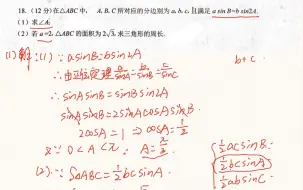 18. (12分)在△ABC中, A、B、C所对应的分边别为a、b、c, 且满足 a sin B=b sin2A.
(1)求∠A;
(2)若a=2, △ABC的面积为2√3, 求三角形的周长.
(1)解:(1) ∵ asinB=bsin2A
b+c
∴由正弦定理 a/sinA = b/sinB = c/sinC
∴ sinAsinB=sinBsin2A
sinAsinB=2sinAcosAsinB
2cosA=1 ⇒ cosA=1/2
又∵ 0<A<π ∴
(2). ∵ S△ABC=1/2 bcsinA
1/2 acsinB
1/2 bcsinA
1/2 absinC